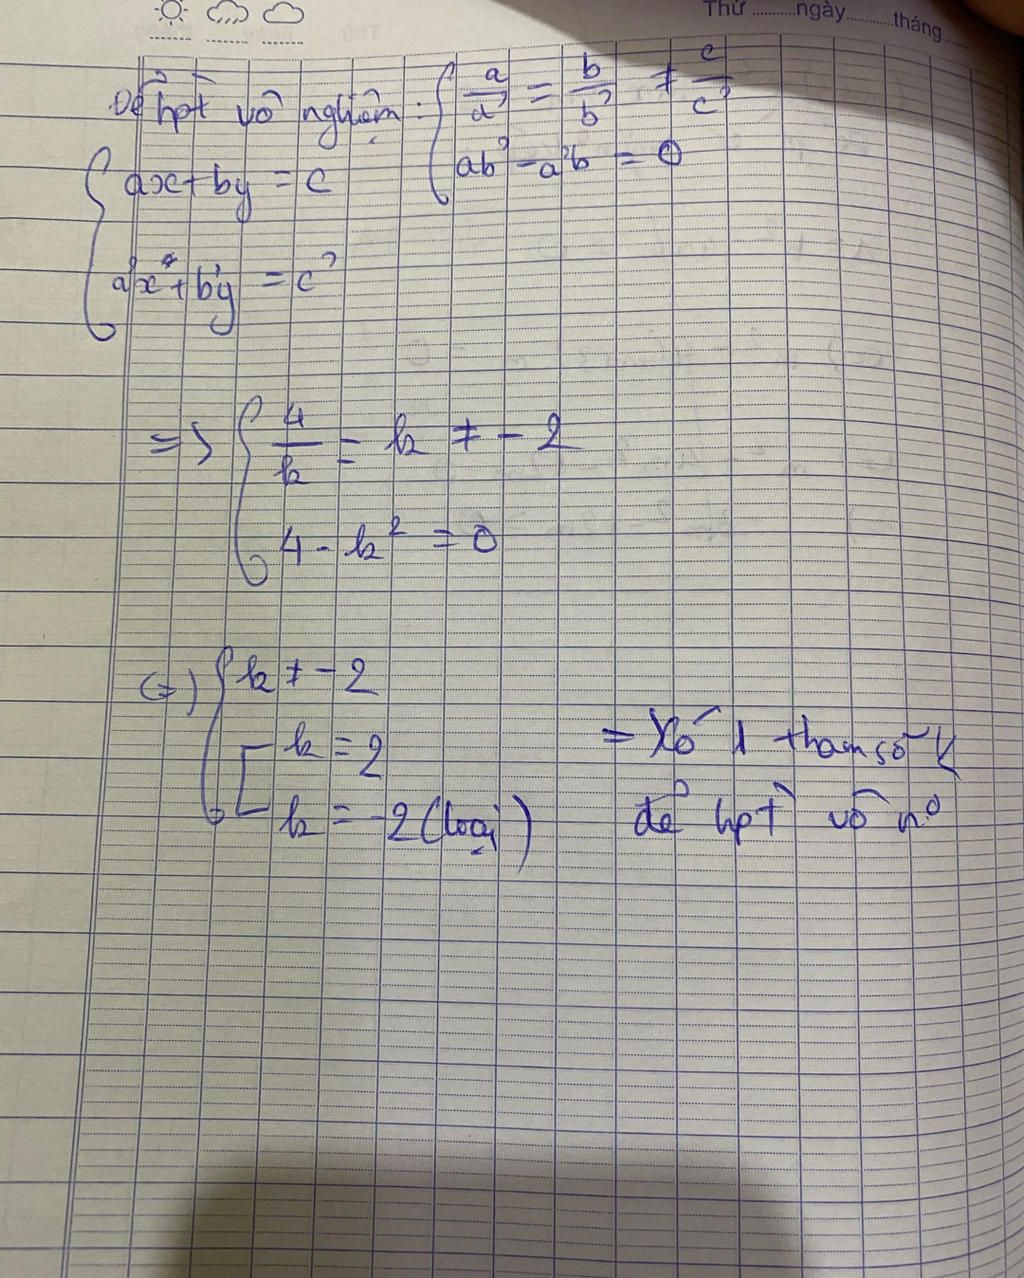 Thứ ..........ngày..........tháng
Để hpt vô nghiệm : { a/a' = b/b' ≠ c/c'
ab' - a'b = 0
{ ax + by = c
a'x + b'y = c'
=> { 4/k = k ≠ -2
4 - k² = 0
(=) { k ≠ -2
[ k = 2
k = -2 (loại)
= Xố 1 tham số k
để hpt vô n⁰